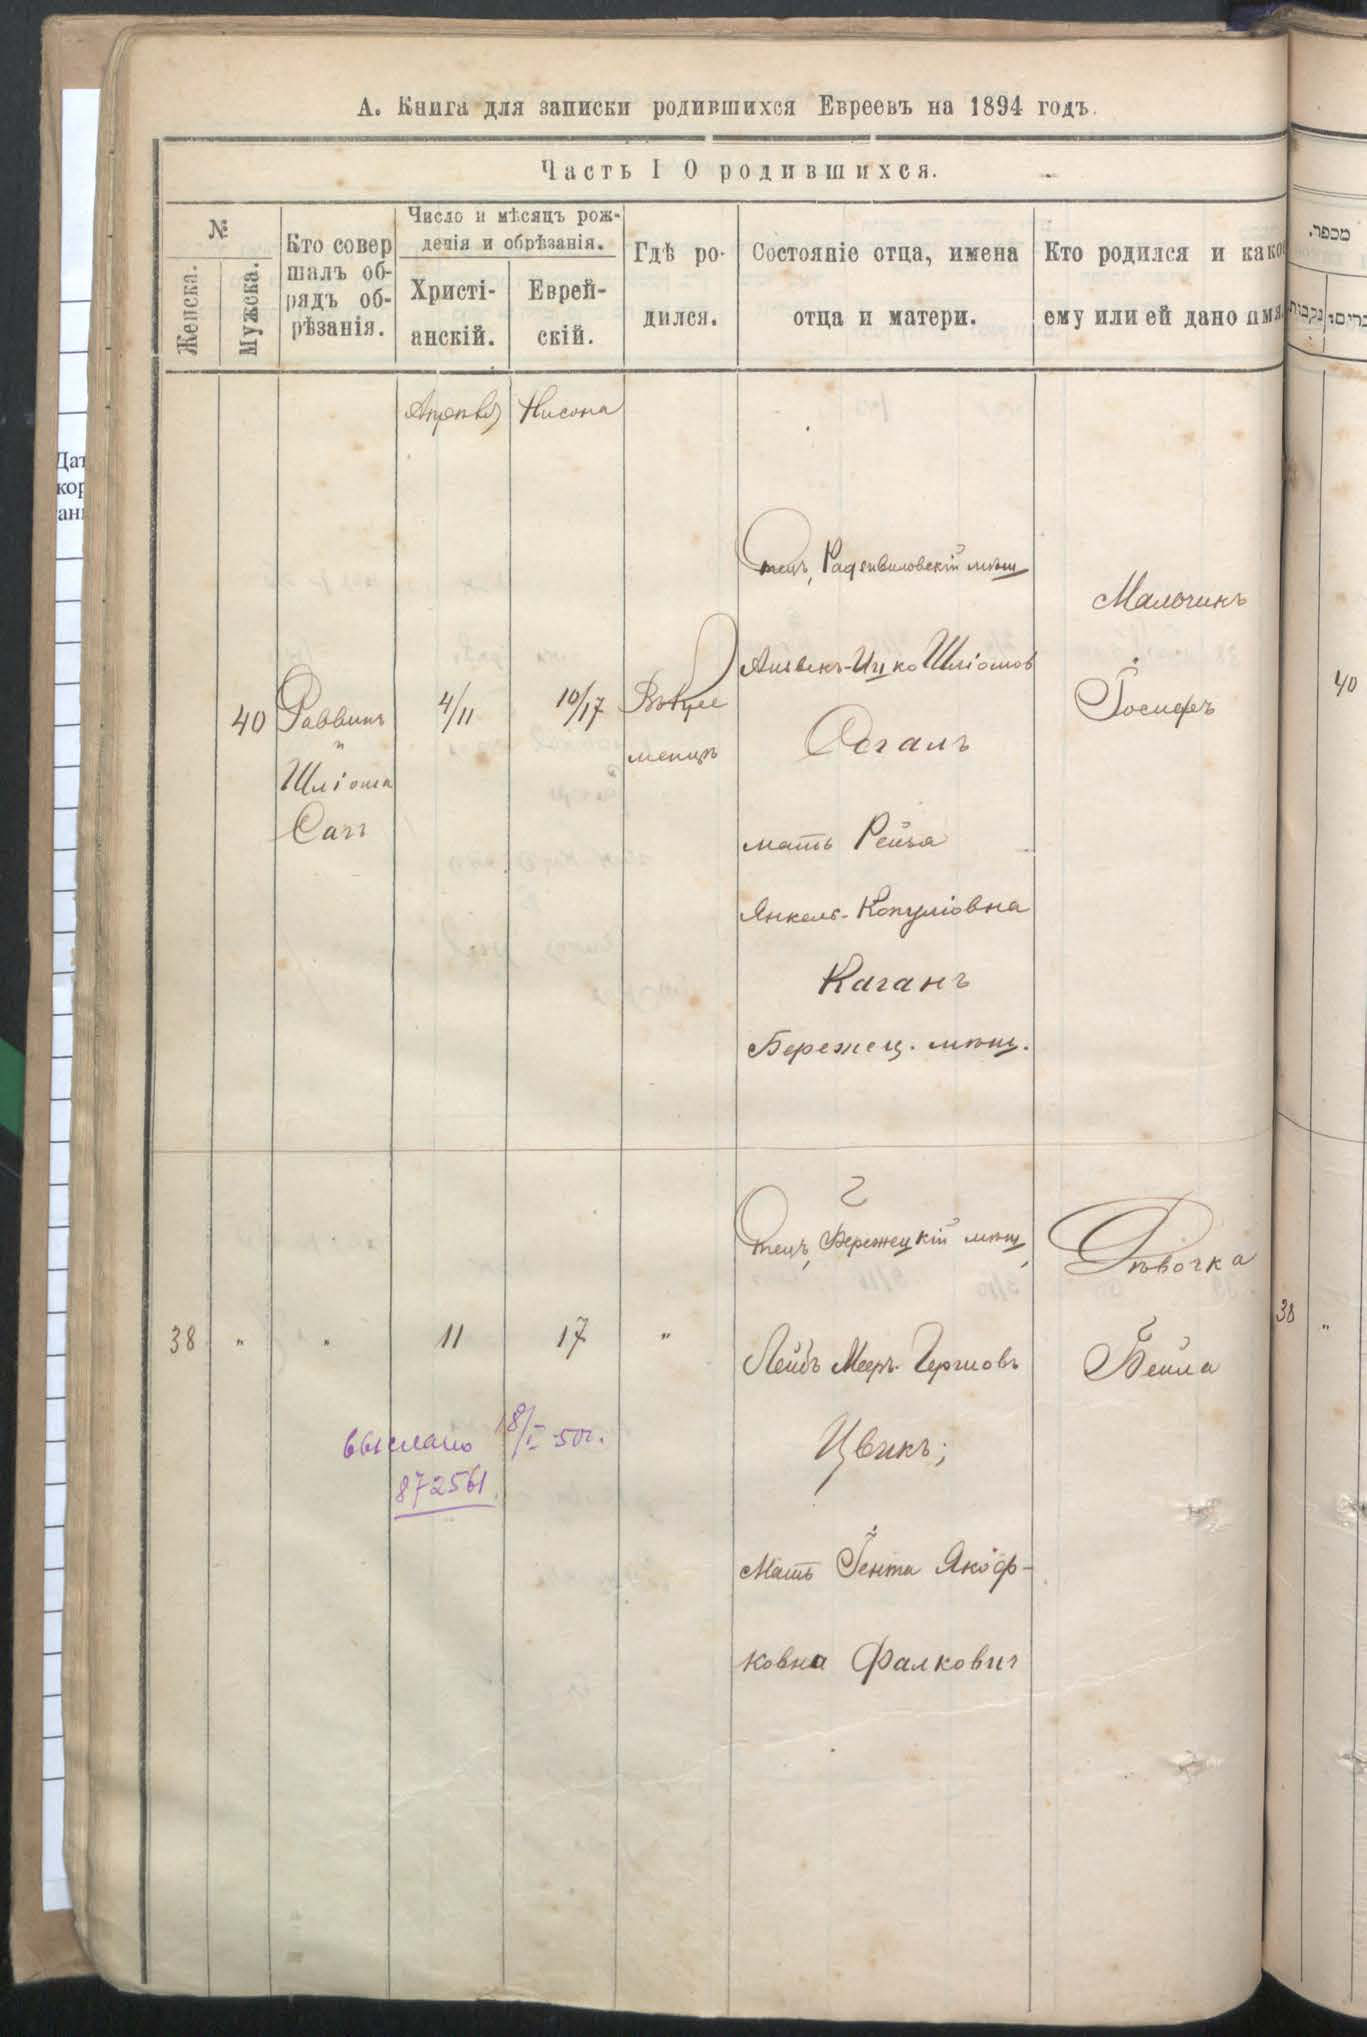 А. Книга для записки родившихся Евреевъ на 1894 годъ.
Часть I О родившихся.
№
Женска.
Мужска.
Кто совер
шалъ об-
рядъ об-
рѣзанія.
Число и мѣсяцъ рож-
денія и обрѣзанія.
Христі-
анскій.
Еврей-
скій.
Гдѣ ро-
дился.
Состояніе отца, имена
отца и матери.
Кто родился и како
ему или ей дано имя.
מכפר.
נקבות
Нисона
40
Раввинъ
и
Шліома
4/11
10/17
менцѣ
Отецъ, Радзивиловскій мѣщ
Шліомов
Сегалъ
мать Рейзя
Янкель-
Каганъ
Бережец. мѣщ.
Мальчикъ
Іосифъ
40
38
"
"
11
17
"
Отецъ, Бережецкій мѣщ,
Лейбъ Мееръ Гершовъ
Цвикъ;
Мать Гента
ковна Фалкович
Дѣвочка
Бейла
38
"
выслано 18/I 50г.
872561.
Дат
кор
ан